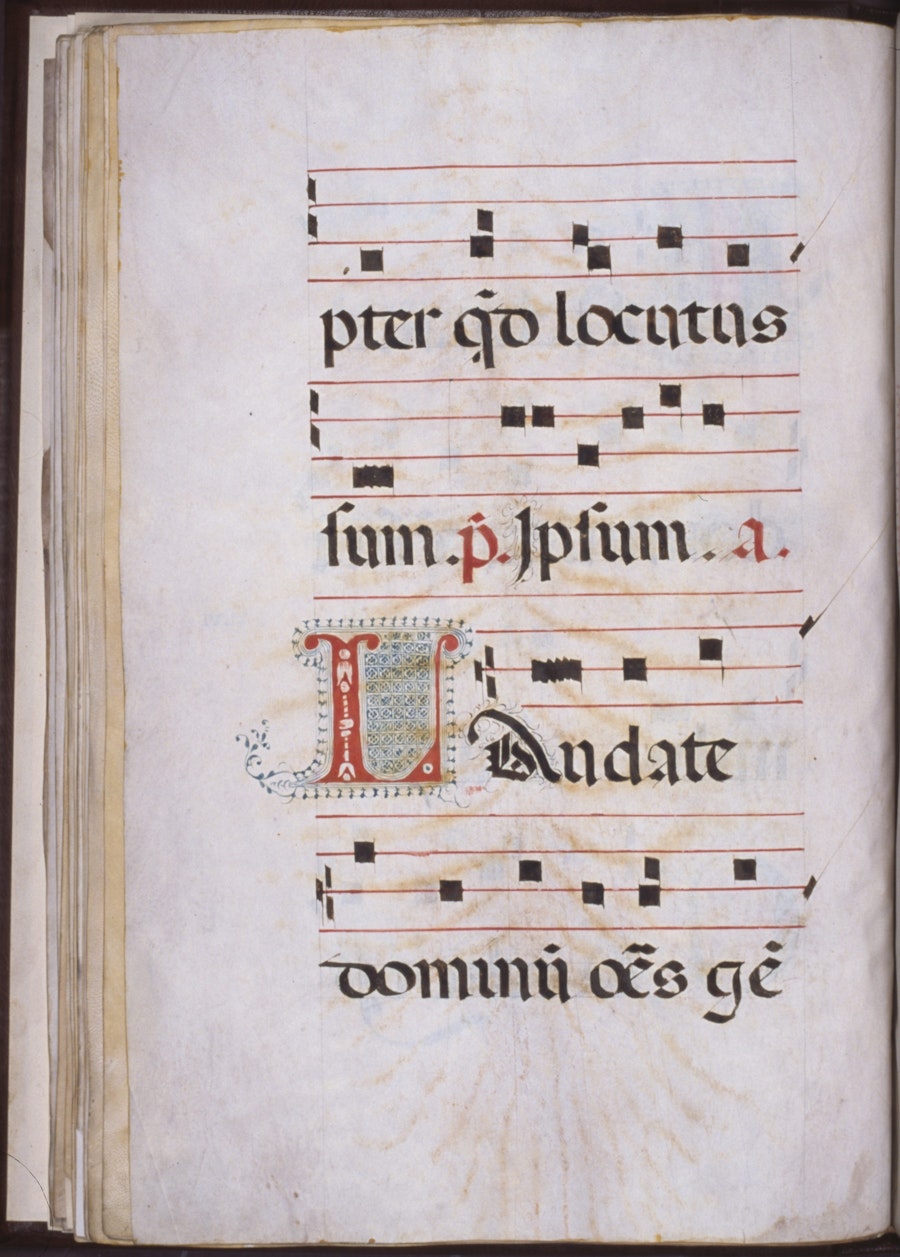 pter q̄d locutus
sum. p̄. Ipsum. a.
LAudate
dominū oēs gē